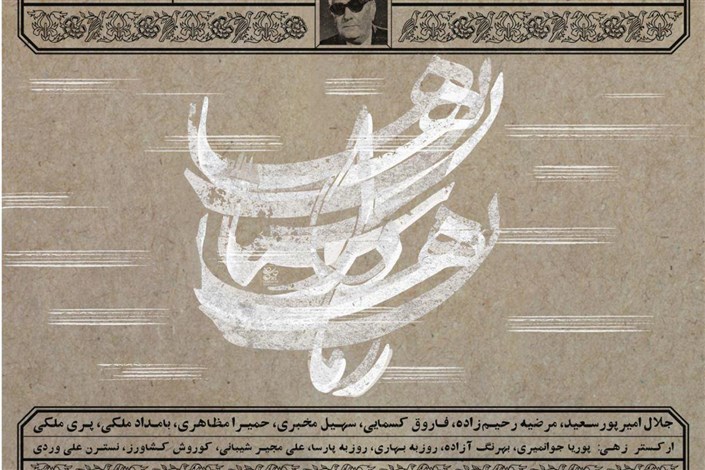 جلال امیرپورسعید، مرضیه رحیم‌زاده، فاروق کسمایی، سهیل مخبری، حمیرا مظاهری، بامداد ملکی، پری ملکی
ارکستر زهی: پوریا جوانمیری، بهرنگ آزاده، روزبه بهاری، روزبه پارسا، علی مجیر شیبانی، کوروش کشاورز، نسترن علی وردی